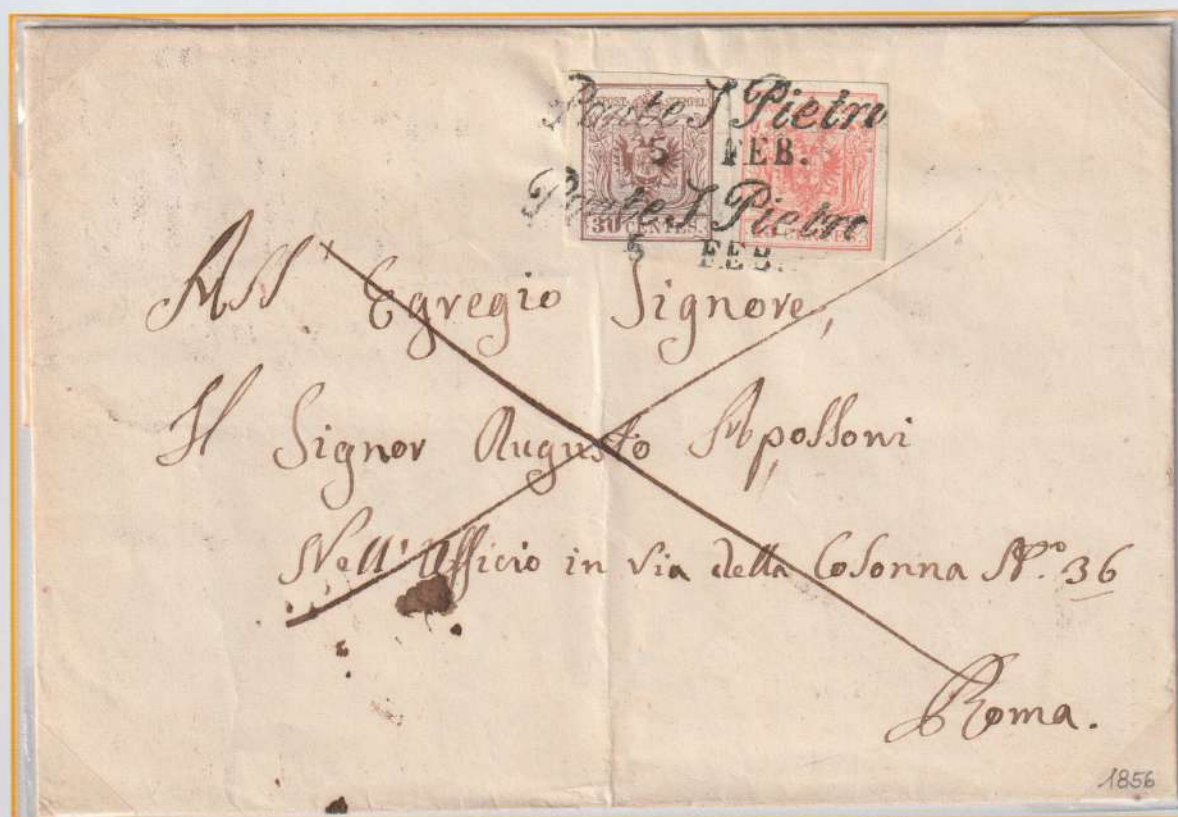 Ponte S Pietro
5 FEB.
Ponte S Pietro
5 FEB.
30 CENTES.
All' Egregio Signore,
Il Signor Augusto Apolloni
Nell' Ufficio in via della Colonna N.º 36
Roma.
1856